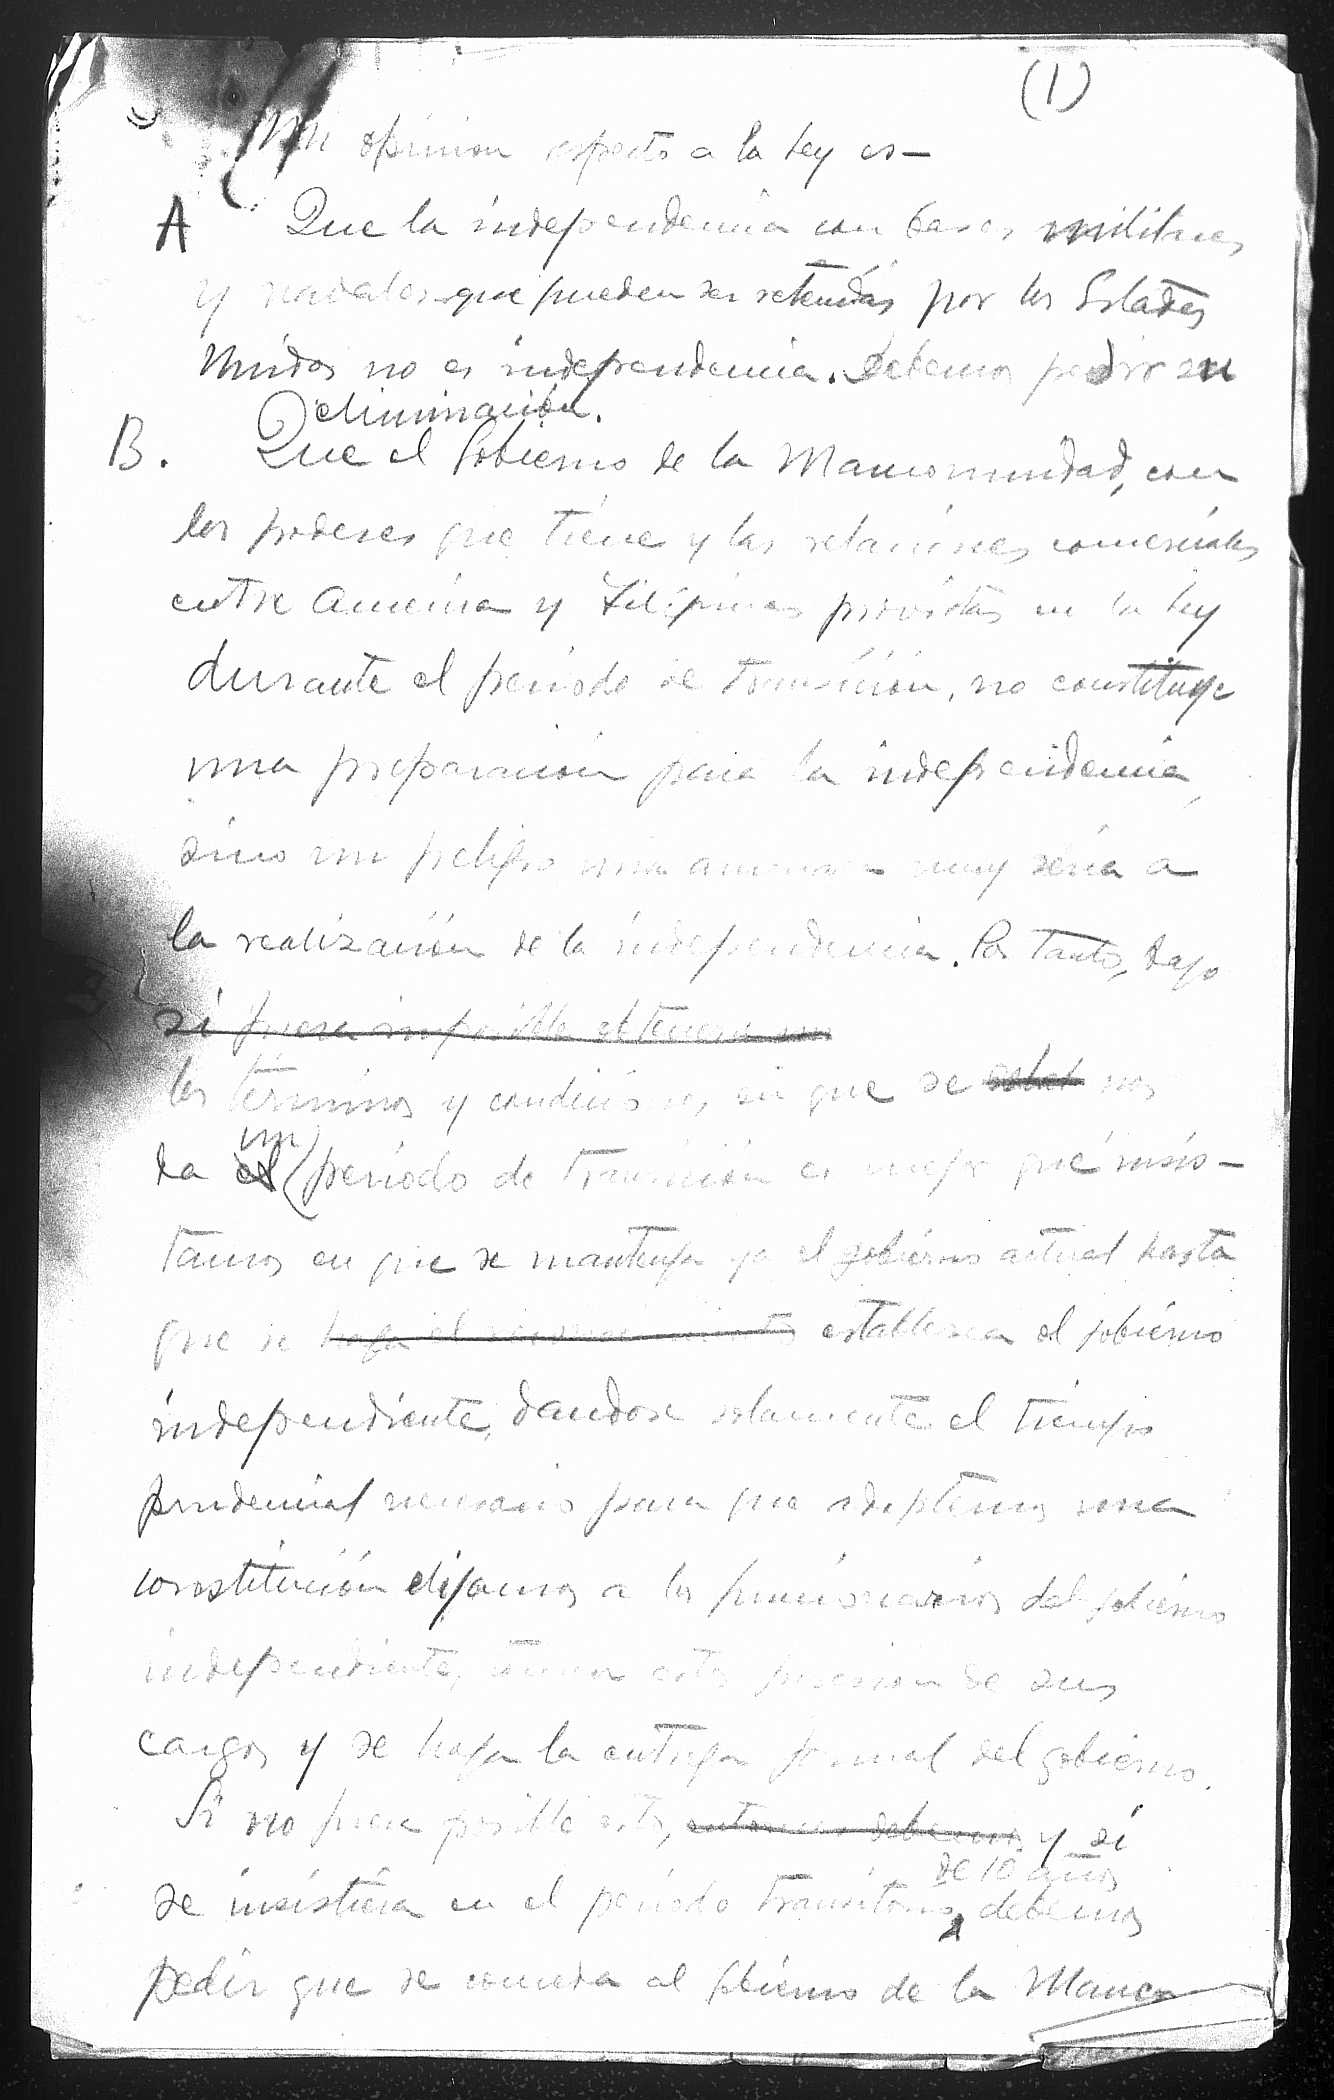 (1)
Mi opinion respecto a la Ley es—
A Que la independencia con bases militares
y navales que pueden ser retenidas por los Estados
Unidos no es independencia. Debemos pedir su
eliminación.
B. Que el Gobierno de la Mancomunidad, con
los poderes que tiene y las relaciones comerciales
entre America y Filipinas provistas en la Ley
durante el período de transición, no constituye
una preparación para la independencia,
sino un peligro una amenaza muy séria a
la realización de la independencia. Por tanto, bajo
si fuera imposible obtenerse un
los términos y condiciones, en que se nos
da el un período de transición es mejor que insis-
tamos en que se mantenga ya el gobierno actual hasta
que se haga el establezca el gobierno
independiente, dandose solamente el tiempo
prudencial necesario para que adoptemos una
constitución elijamos a los funcionarios del gobierno
independiente, tomen estos posesion de sus
cargos y se haga la entrega formal del gobierno.
Si no fuera posible esto, entonces debemos y si
de 10 años
se insistiera en el período transitorio, debemos
pedir que se conceda al gobierno de la Manco